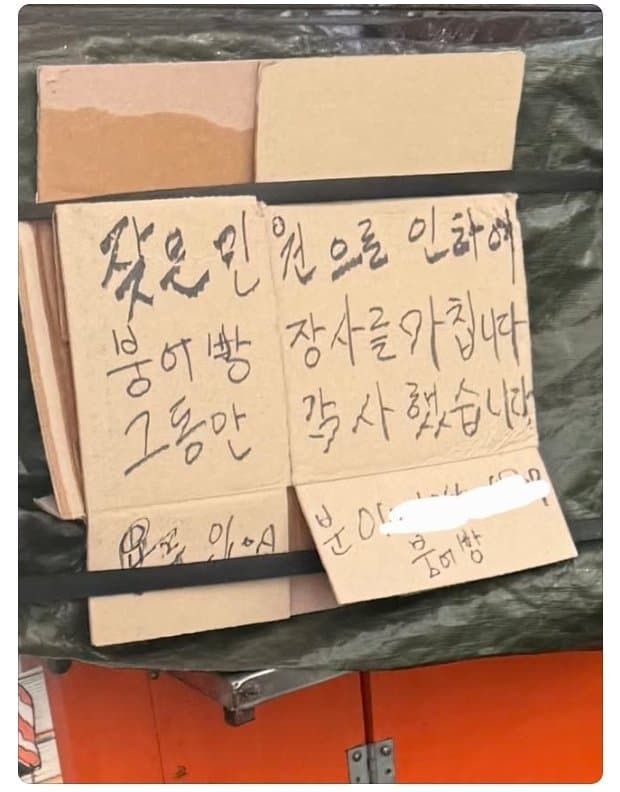 잦은 민원으를 인하여
붕어빵 장사를 마칩니다
그동안 감사 했습니다
붕어빵